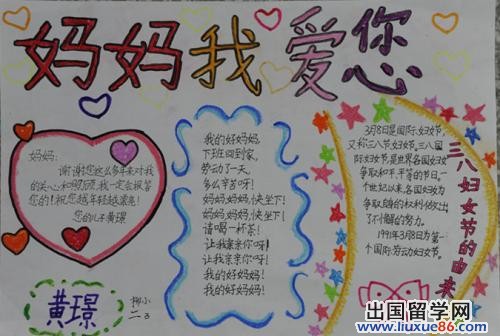 妈妈我爱您
妈妈:
谢谢您这么多年来对我
的关心和照顾,我一定会报答
您的!祝您越年轻越漂亮!
您的儿子黄璟
我的好妈妈,
下班回到家,
劳动了一天,
多么辛苦呀!
妈妈妈妈快坐下!
妈妈,妈妈,快坐下!
请喝一杯茶!
让我亲亲你呀!
让我亲亲你呀!
我的好妈妈!
我的好妈妈!
3月8日是国际妇女节,
又称三八节妇女节。三八国
际妇女节,是世界各国妇女
争取和平、平等的节日。一
个世纪以来,各国妇女为
争取自身的权利做出
了不懈的努力。
1991年3月8日为第一
个国际劳动妇女节。
三八妇女节的由来
黄璟
柳小
二3
出国留学网
www.liuxue86.com